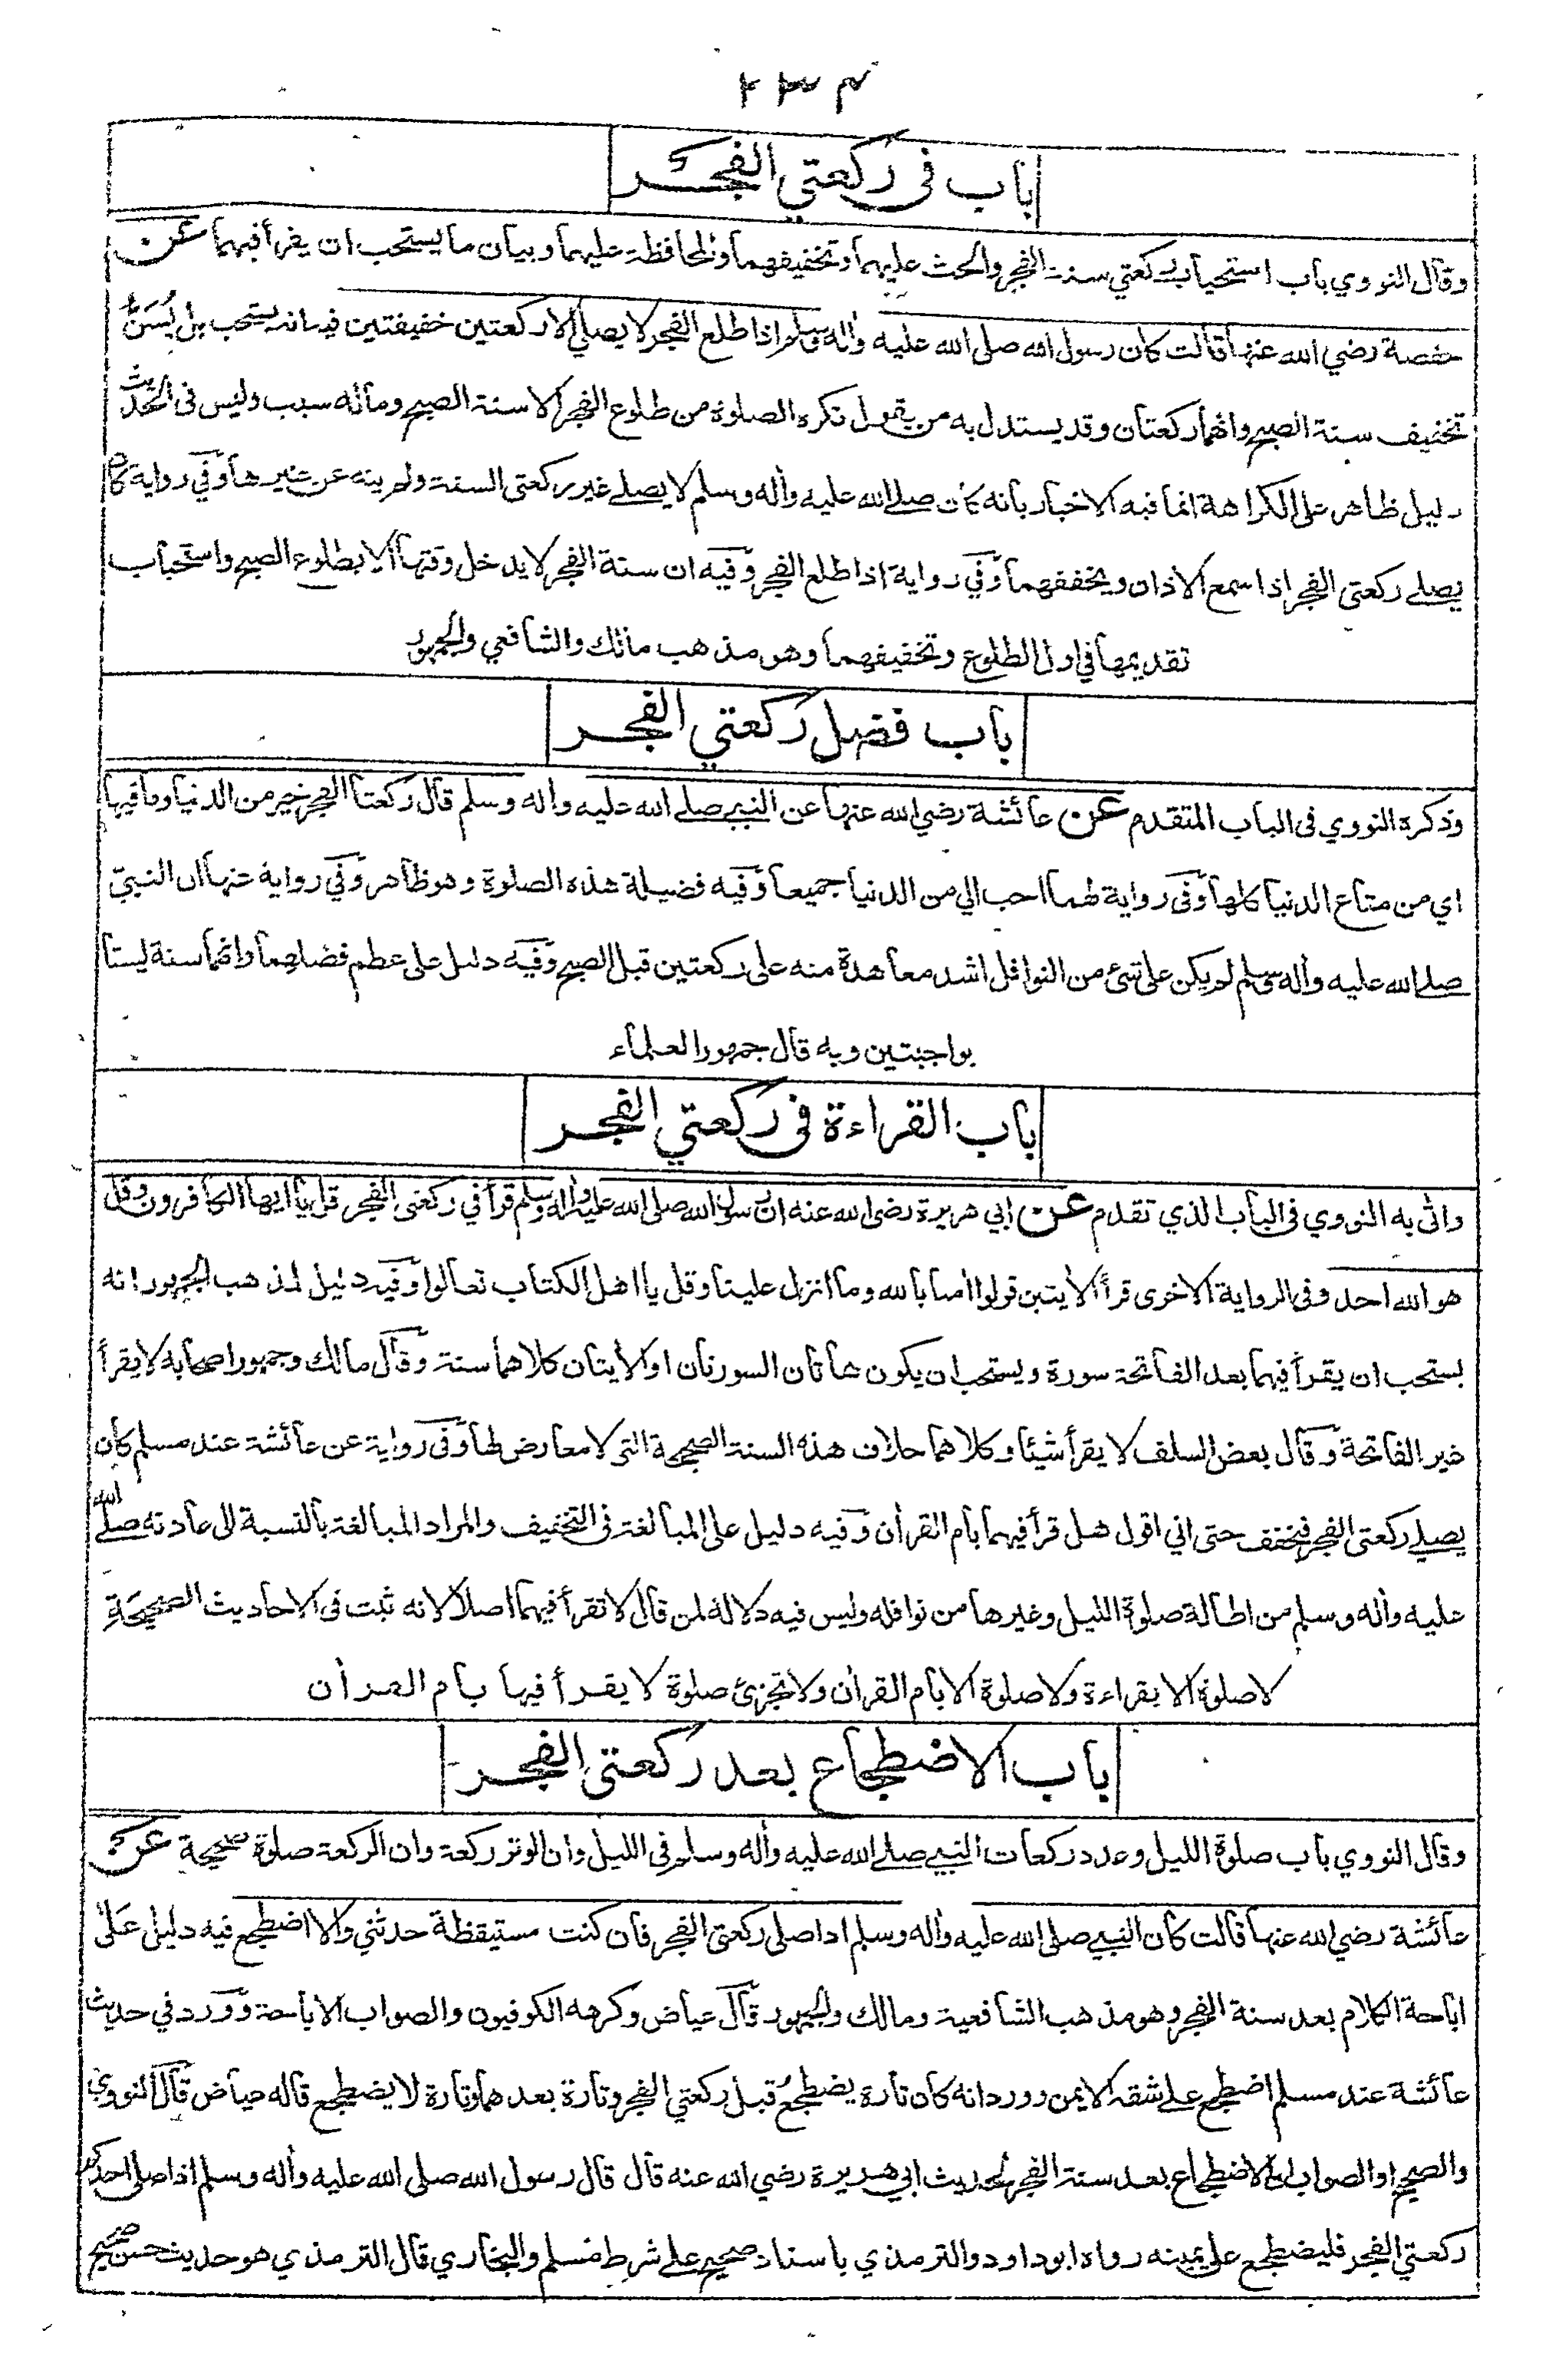 ٢٣٤
باب في ركعتي الفجر
وقال النووي باب استحباب ركعتي سنة الفجر والحث عليهما وتخفيفهما والمحافظة عليهما وبيان ما يستحب ان يقرأ فيهما عن
حفصة رضي الله عنها قالت كان رسول الله صلى الله عليه واله وسلم اذا طلع الفجر لا يصلي الا ركعتين خفيفتين فيه انه يستحب بل يُسَنُّ
تخفيف سنة الصبح وانهما ركعتان وقد يستدل به من يقول تكره الصلوة من طلوع الفجر الا سنة الصبح وماله سبب وليس في الحديث
دليل ظاهر على الكراهة انما فيه الاخبار بانه كان صلے الله عليه واله وسلم لا يصلے غير ركعتي السنة ولم ينه عن غيرها وفي رواية كان
يصلے ركعتي الفجر اذا سمع الاذان ويخففهما وفي رواية اذا طلع الفجر وفيه ان سنة الفجر لا يدخل وقتها الا بطلوع الصبح واستحباب
تقديمها في اول الطلوع وتخفيفهما وهو مذهب مالك والشافعي والجمهور
باب فضل ركعتي الفجر
وذكره النووي في الباب المتقدم عن عائشة رضي الله عنها عن النبي صلے الله عليه واله وسلم قال ركعتا الفجر خير من الدنيا وما فيها
اي من متاع الدنيا كلها وفي رواية لهما احب الي من الدنيا جميعا وفيه فضيلة هذه الصلوة وهو ظاهر وفي رواية عنها ان النبيّ
صلے الله عليه واله وسلم لم يكن على شيء من النوافل اشد معاهدة منه على ركعتين قبل الصبح وفيه دليل على عظم فضلهما وانهما سنة ليستا
بواجبتين وبه قال جمهور العلماء
باب القراءة في ركعتي الفجر
واتى به النووي في الباب الذي تقدم عن ابي هريرة رضي الله عنه ان رسول الله صلى الله عليه واله وسلم قرأ في ركعتي الفجر قل يا ايها الكافرون وقل
هو الله احد وفي الرواية الاخرى قرأ الايتين قولوا امنا بالله وما انزل علينا وقل يا اهل الكتاب تعالوا وفيه دليل لمذهب الجمهور انه
يستحب ان يقرأ فيهما بعد الفاتحة سورة ويستحب ان يكون هاتان السورتان او الايتان كلاهما سنة وقال مالك وجمهور اصحابه لا يقرأ
غير الفاتحة وقال بعض السلف لا يقرأ شيئا وكلاهما خلاف هذه السنة الصحيحة التي لا معارض لها وفي رواية عن عائشة عند مسلم كان
يصلے ركعتي الفجر فيخفف حتى اني اقول هل قرأ فيهما بام القرأن وفيه دليل على المبالغة في التخفيف والمراد المبالغة بالنسبة الى عادته صلے الله
عليه واله وسلم من اطالة صلوة الليل وغيرها من نوافله وليس فيه دلالة لمن قال لا تقرأ فيهما اصلا لانه ثبت في الاحاديث الصحيحة
لا صلوة الا بقراءة ولا صلوة الا بام القرأن ولا تجزئ صلوة لا يقرأ فيها بام القرأن
باب الاضطجاع بعد ركعتي الفجر
وقال النووي باب صلوة الليل وعدد ركعات النبي صلے الله عليه واله وسلم في الليل وان الوتر ركعة وان الركعة صلوة صحيحة عن
عائشة رضي الله عنها قالت كان النبي صلى الله عليه واله وسلم اذا صلى ركعتي الفجر فان كنت مستيقظة حدثني والا اضطجع فيه دليل على
اباحة الكلام بعد سنة الفجر وهو مذهب الشافعية ومالك والجمهور قال عياض وكرهه الكوفيون والصواب الاباحة وورد في حديث
عائشة عند مسلم اضطجع على شقه الايمن وورد انه كان تارة يضطجع قبل ركعتي الفجر وتارة بعدهما وتارة لا يضطجع قاله عياض قال النووي
والصحيح او الصواب الاضطجاع بعد سنة الفجر لحديث ابي هريرة رضي الله عنه قال قال رسول الله صلى الله عليه واله وسلم اذا صلى احدكم
ركعتي الفجر فليضطجع على يمينه رواه ابو داود والترمذي باسناد صحيح على شرط مسلم والبخاري قال الترمذي هو حديث حسن صحيح